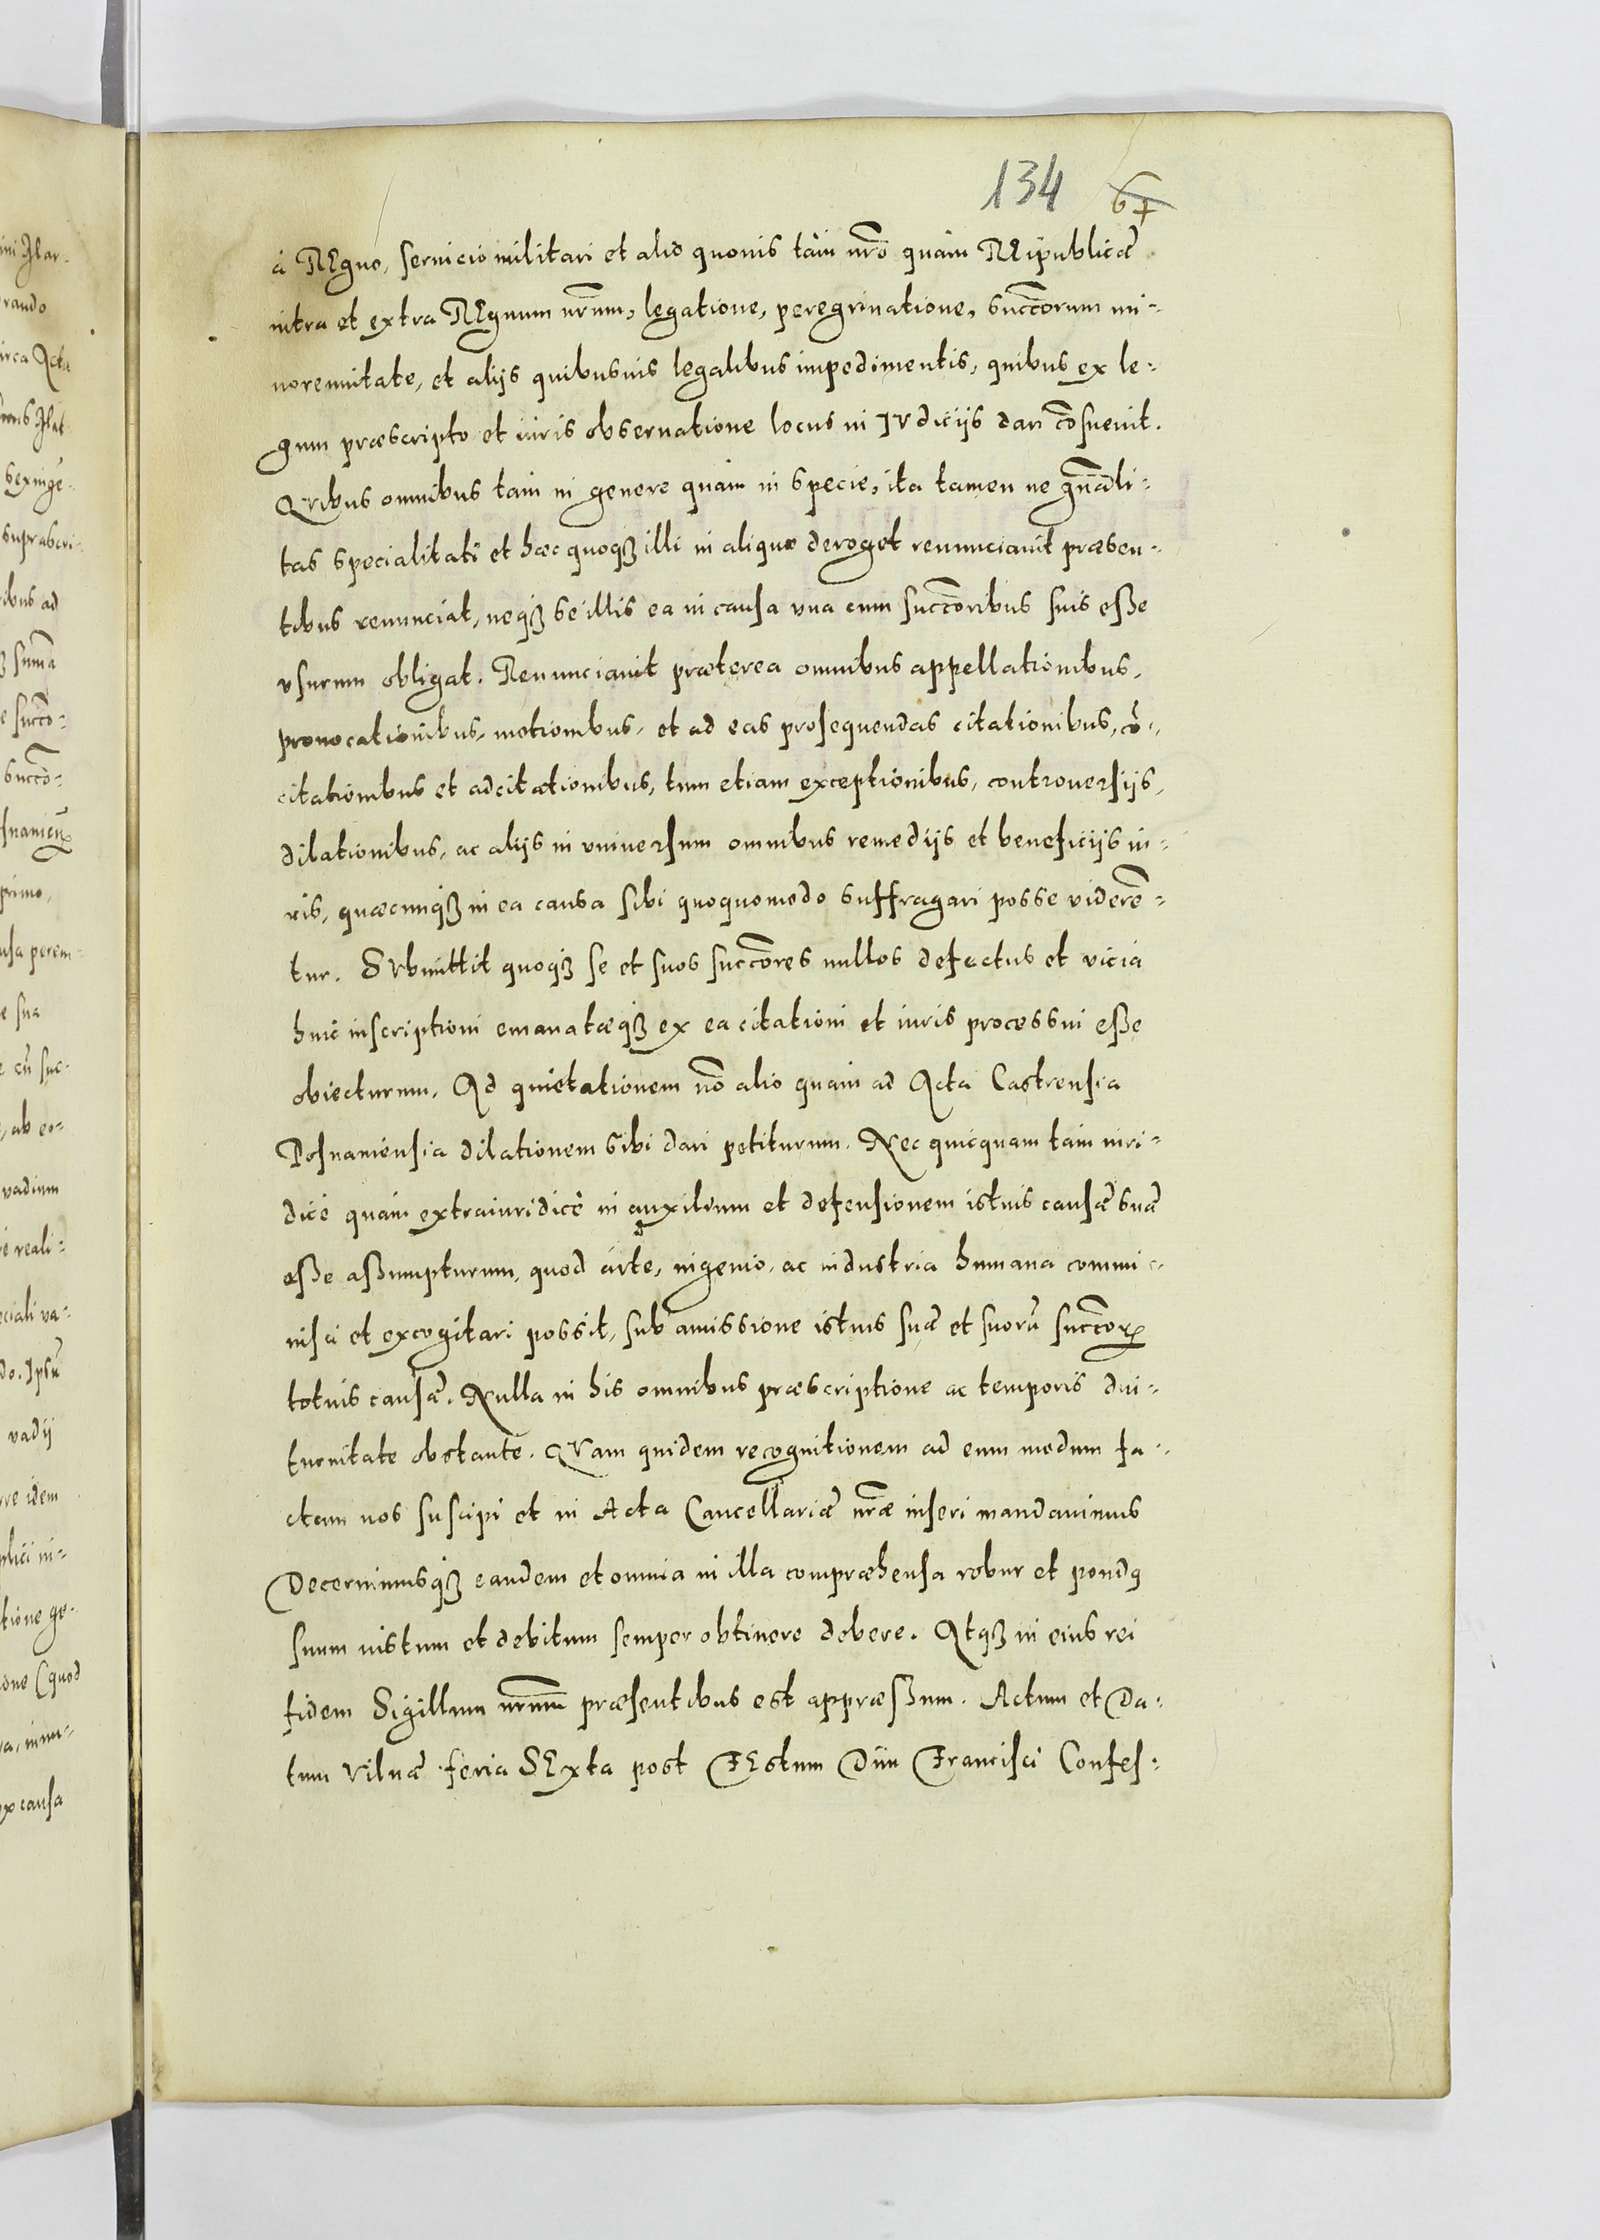 134 67
à REgno, seruicio militari et alio quouis tàm nr̃o quàm REipublicæ
intra et extra REgnum nr̃um, legatione, peregrinatione, succ̃orum mi-
norennitate, et alijs quibusuis legalibus impedimentis, quibus ex le-
gum præscripto et iuris obseruatione locus in IVdicijs dari cõsueuit.
QVibus omnibus tam in genere quàm in specie, ita tamen ne gñali-
tas specialitati et hæc quoqꝫ illi in aliquo deroget renunciauit præsen-
tibus renunciat, neqꝫ se illis ea in causa vna cum succ̃oribus suis eße
vsurum obligat. Renunciauit præterea omnibus appellationibus,
prouocationibus, motionibus, et ad eas prosequendas citationibus, cõ-
citationibus et adcitationibus, tum etiam exceptionibus, controuersijs,
dilationibus, ac alijs in vniuersum omnibus remedijs et beneficijs iu-
ris, quæcunqꝫ in ea causa sibi quoquomodo suffragari posse viderẽ-
tur. SVbmittit quoqꝫ se et suos succ̃ores nullos defectus et vicia
huic inscriptioni emanatæqꝫ ex ea citationi et iuris processui eße
obiecturum. Ad quietationem nõ alio quàm ad Acta Castrensia
Posnaniensia dilationem sibi dari petiturum. Nec quicquam tàm iuri-
dicè quàm extraiuridicè in auxilium et defensionem istius causæ suæ
eße aßumpturum, quod arte, ingenio, ac industria humana commi-
nisci et excogitari possit, sub amissione istius suæ et suorũ succ̃oꝝ
totius causæ. Nulla in his omnibus præscriptione ac temporis diu-
turnitate obstante. QVam quidem recognitionem ad eum modum fa-
ctam nos suscipi et in Acta Cancellariæ nr̃æ inseri mandauimus
Decernimusqꝫ eandem et omnia in illa compræhensa robur et pondꝯ
suum iustum et debitum semper obtinere debere. Atqꝫ in eius rei
fidem Sigillum nr̃um præsentibus est appræßum. Actum et Da-
tum Vilnæ feria SExta post FEstum Diui Francisci Confes-